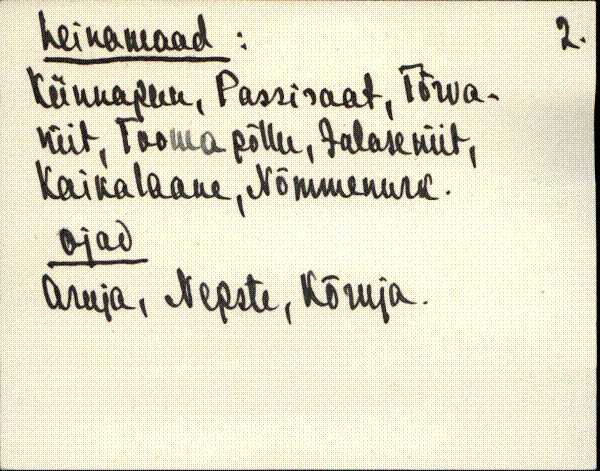 heinamaad : 2.
Künnapuu, Passisaat, Tõrva-
niit, Tooma põllu, Jalaseniit,
Kaikalaane, Nõmmenurk.
ojad
Aruja, Nepste, Kõruja.